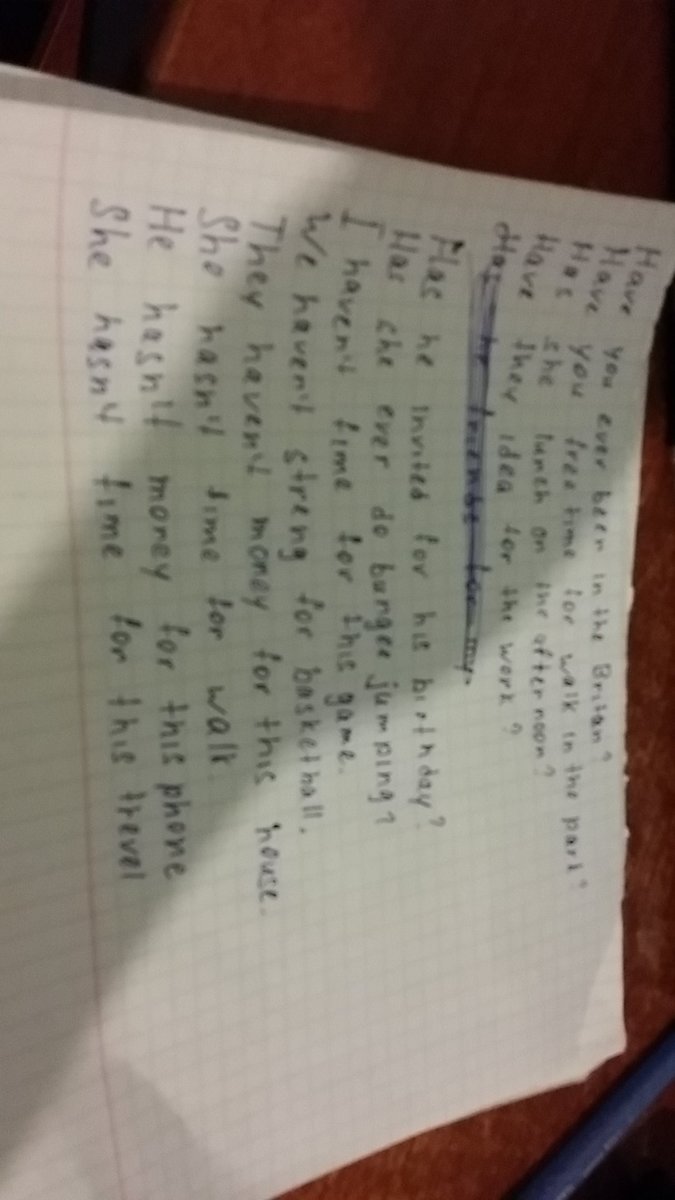 Have you ever been in the Britan?
Have you free time for walk in the park?
Has she lunch on the afternoon?
Have they idea for the work?
Has he invited for his birthday?
Has she ever do bungee jumping?
I haven't time for this game.
We haven't streng for basketball.
They haven't money for this house.
She hasn't time for walk.
He hasn't money for this phone
She hasn't time for this trevel